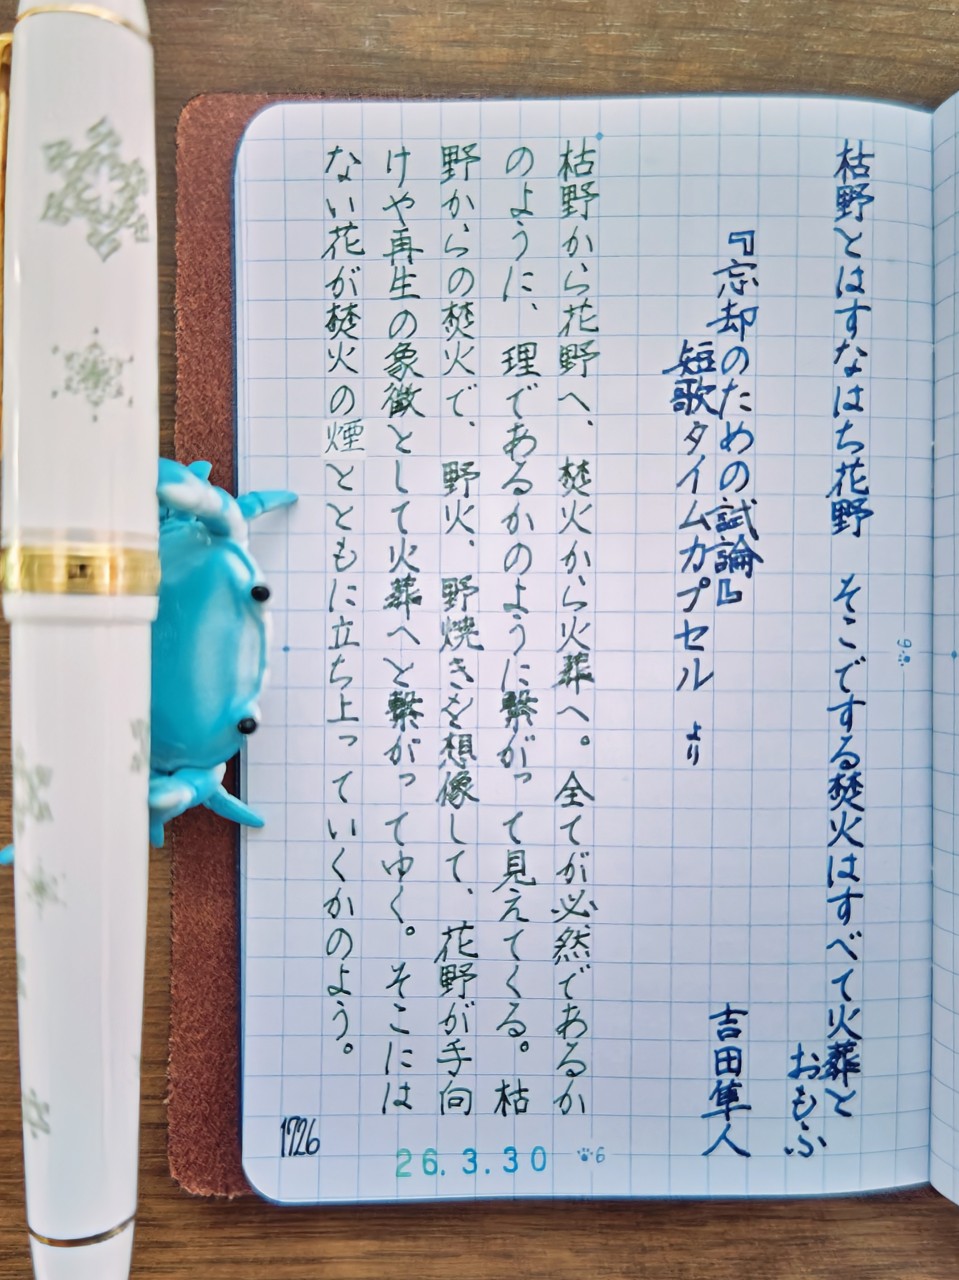 枯野とはすなはち花野　そこでする焚火はすべて火葬と
おもふ
『忘却のための試論』
短歌タイムカプセル　より
吉田隼人
枯野から花野へ、焚火から火葬へ。全てが必然であるか
のように、理であるかのように繋がって見えてくる。枯
野からの焚火で、野火、野焼きを想像して、花野が手向
けや再生の象徴として火葬へと繋がってゆく。そこには
ない花が焚火の煙とともに立ち上っていくかのよう。
1726
26.3.30
6
9